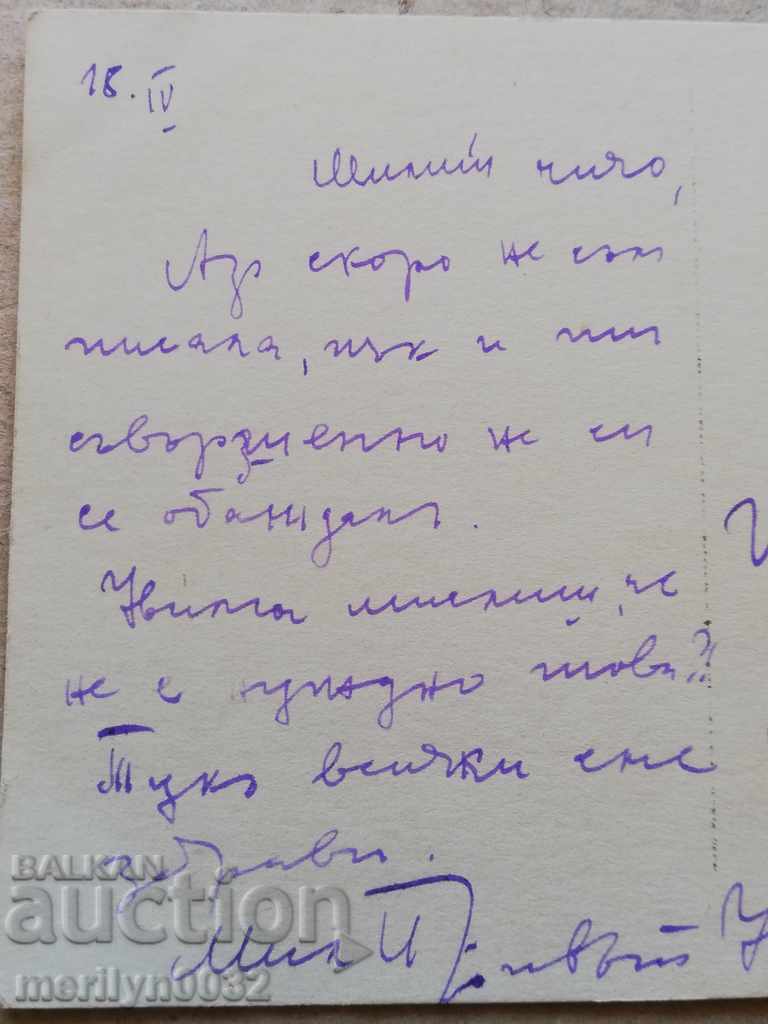 18. IV
Милий чичо,
Азъ скоро не съм
писала, пък и ти
съвършенно не си
се обаждалъ.
Нима мислиш, че
не е нуждно това?!
Тукъ всички сме
здрави.
Мил Привѣт
BALKAN
auction
merilyn0032